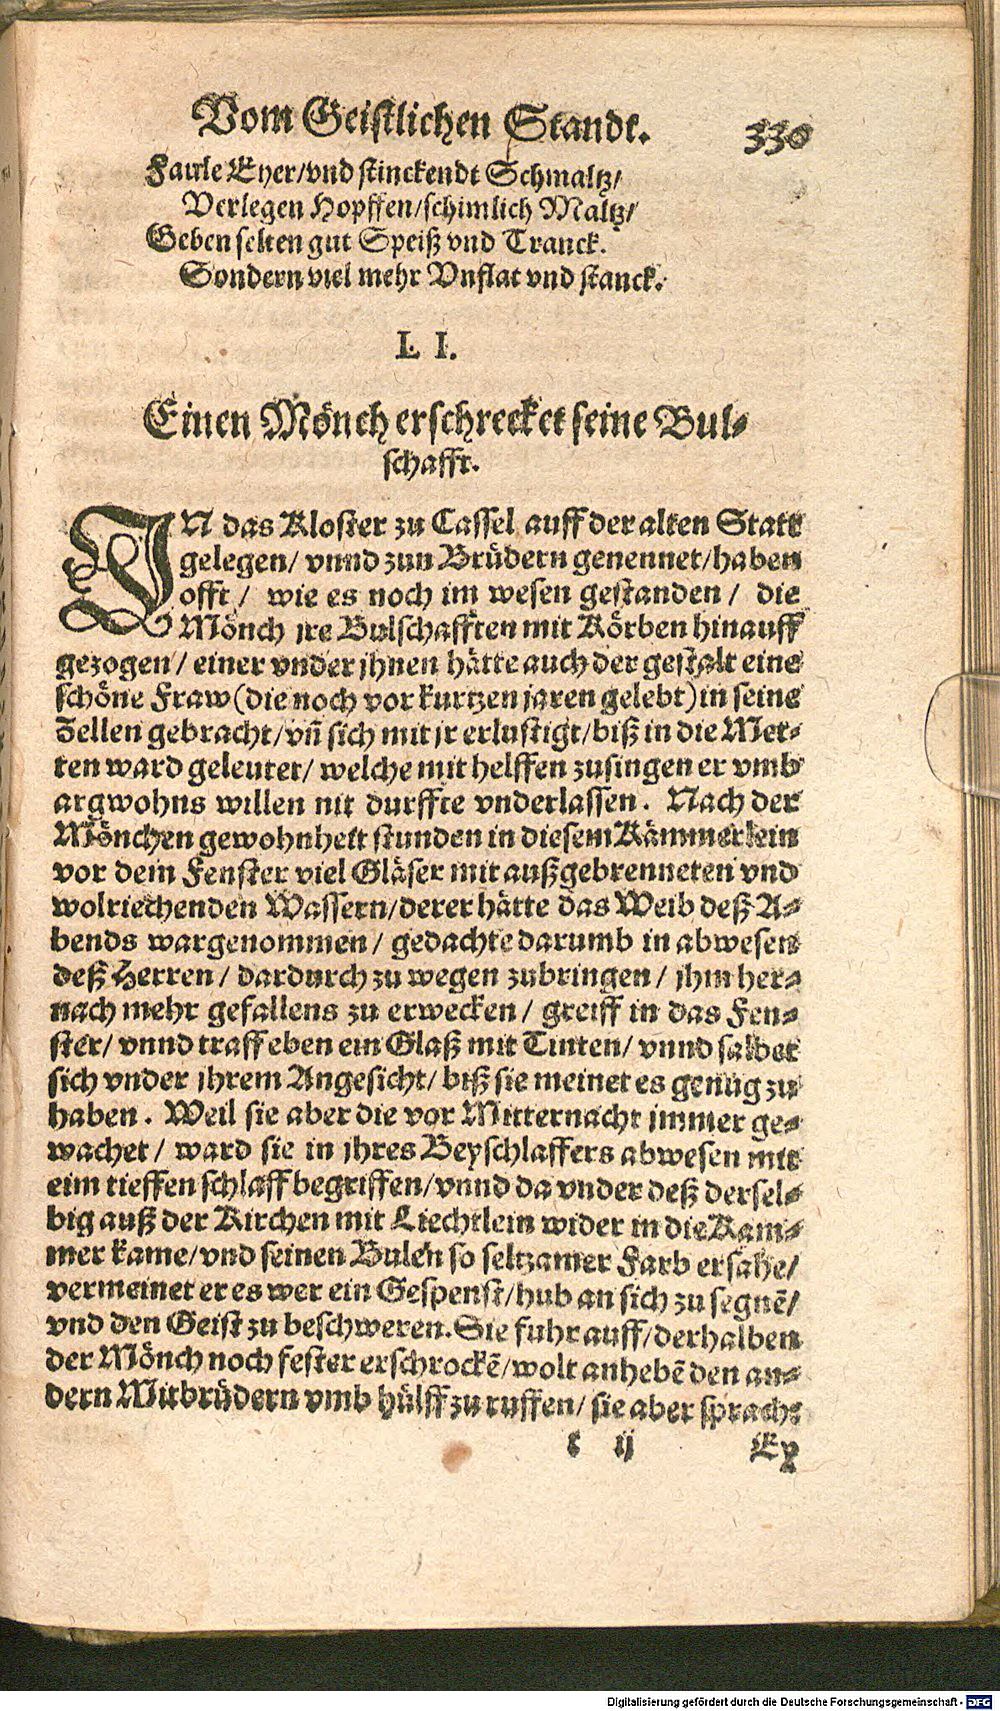 Vom Geistlichen Standt. 330
Faule Eyer/vnd stinckendt Schmaltz/
Verlegen Hopffen/schimlich Maltz/
Geben selten gut Speiß vnd Tranck.
Sondern viel mehr Vnflat vnd stanck.
L I.
Einen Mönch erschrecket seine Bul-
schafft.
IN das Kloster zu Cassel auff der alten Statt
gelegen/ vnnd zun Brüdern genennet/haben
offt/ wie es noch im wesen gestanden/ die
Mönch jre Bulschafften mit Körben hinauff
gezogen/ einer vnder jhnen hätte auch der gestalt eine
schöne Fraw (die noch vor kurtzen jaren gelebt) in seine
Zellen gebracht/vñ sich mit jr erlustigt/biß in die Met-
ten ward geleutet/ welche mit helffen zusingen er vmb
argwohns willen nit durffte vnderlassen. Nach der
Mönchen gewohnheit stunden in diesem Kämmerlein
vor dem Fenster viel Gläser mit außgebrenneten vnd
wolriechenden Wassern/derer hätte das Weib deß A-
bends wargenommen/ gedachte darumb in abwesen
deß Herren/ dardurch zu wegen zubringen/ jhm her-
nach mehr gefallens zu erwecken/ greiff in das Fen-
ster/ vnnd traff eben ein Glaß mit Tinten/ vnnd salbet
sich vnder jhrem Angesicht/ biß sie meinet es genug zu
haben. Weil sie aber die vor Mitternacht jmmer ge-
wachet/ ward sie in jhres Beyschlaffers abwesen mit
eim tieffen schlaff begriffen/vnnd da vnder deß dersel-
big auß der Kirchen mit Liechtlein wider in die Kam-
mer kame/vnd seinen Bulen so seltzamer Farb ersahe/
vermeinet er es wer ein Gespenst/hub an sich zu segnẽ/
vnd den Geist zu beschweren. Sie fuhr auff/derhalben
der Mönch noch fester erschrockẽ/wolt anhebẽ den an-
dern Mitbrüdern vmb hülff zu ruffen/ sie aber sprach:
t ij Ey
Digitalisierung gefördert durch die Deutsche Forschungsgemeinschaft - DFG